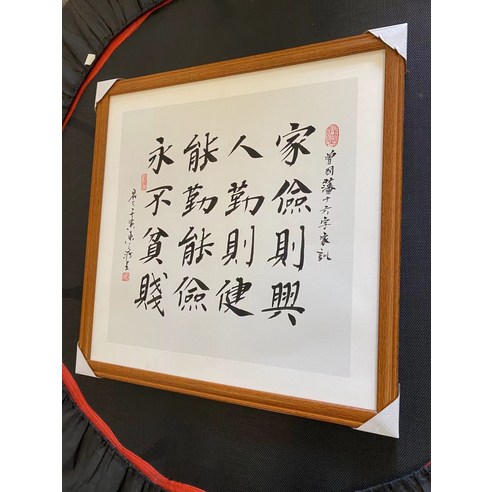 曾国藩十六字家訓
家儉則興
人勤則健
能勤能儉
永不貧賤